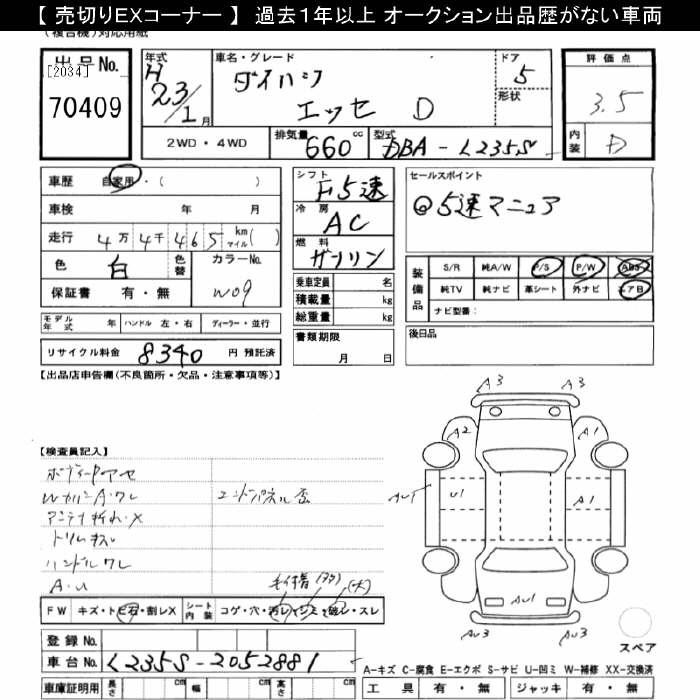 【 売切りEXコーナー 】 過去1年以上 オークション出品歴がない車両
(複合機)対応用紙
出 品 No.
[2034]
70409
年式 H 23/1 月
車名・グレード
ダイハツ
エッセ D
ドア 5
形状
評 価 点
3.5
内装 D
2WD・4WD
排気量 660 cc
型式 DBA - L235S
車歴 自家用・( )
車検 年 月
走行 4万 4千 465 km マイル( )
色 白 色替
カラーNo. W09
保証書 有・無
モデル年式 年 ハンドル 左・右 ディーラー・並行
リサイクル料金 8340 円 預託済
シフト F5速
冷房 AC
燃料 ガソリン
乗車定員 名
積載量 kg
総重量 kg
書類期限
月 日
セールスポイント
◎5速マニュア
装備品
S/R 純A/W P/S P/W ABS
純TV 純ナビ 革シート 外ナビ エアB
ナビ型番:
後日品
【出品店申告欄(不良箇所・欠品・注意事項等)】
【検査員記入】
アンテナ折れ・X
ハンドルワレ
A・U
A3 A3
A2 A1
AU1 U1 A1
AU1
AU3 AU3
スペア
FW キズ・トビ石・割レX シート内装 コゲ・穴・汚レ・シミ・破レ・スレ
登録 No.
車台 No. L235S-2052881
車庫証明用 長さ cm 幅 cm 高さ cm
A-キズ C-腐食 E-エクボ S-サビ U-凹ミ W-補修 XX-交換済
工 具 有・無 ジャッキ 有・無